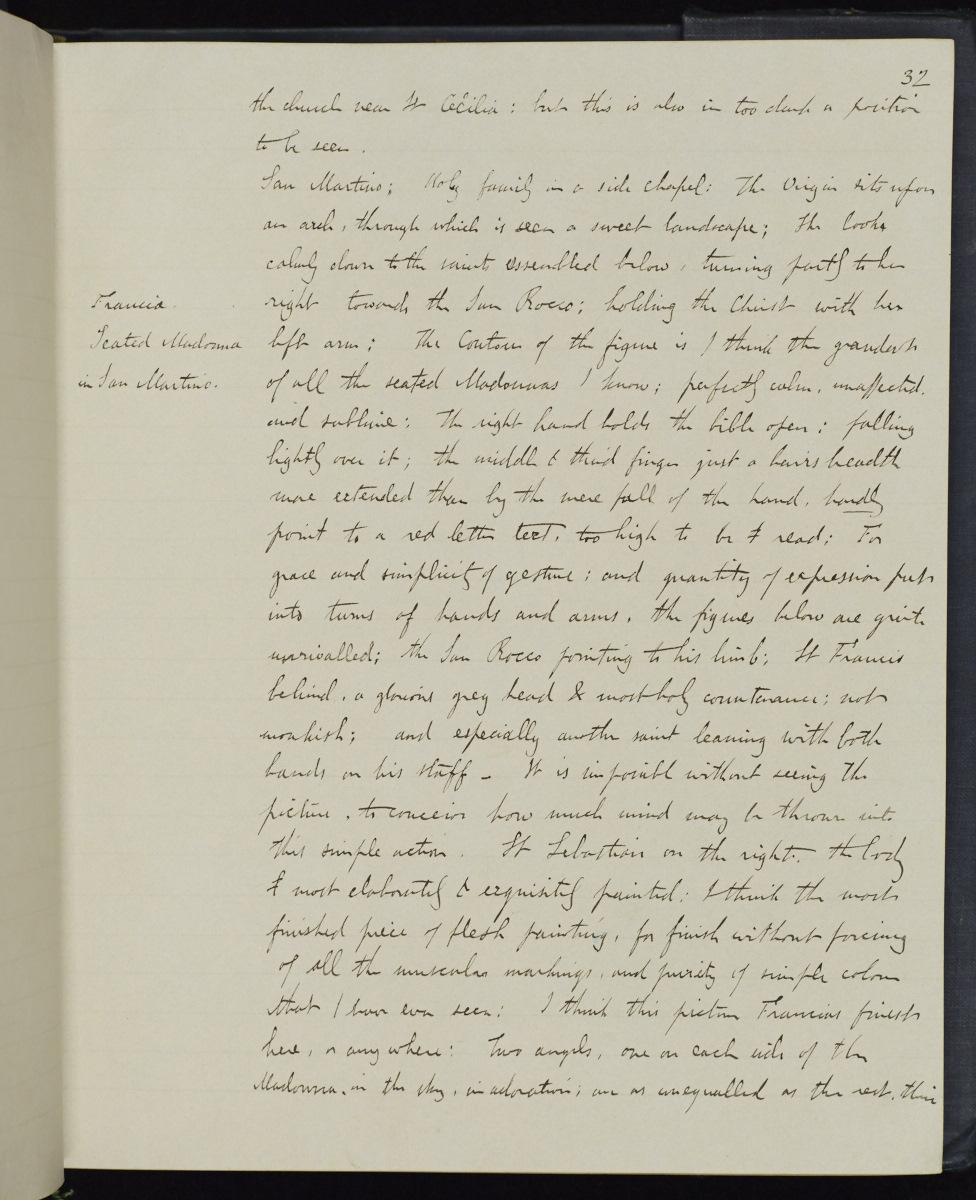 32
the church near St Cecilia : but this is also in too dark a position
to be seen .
San Martino; Holy family in a side chapel: The Virgin sits upon
an arch, through which is seen a sweet landscape; She looks
calmly down to the saints assembled below, turning partly to her
right towards the San Rocco; holding the Christ with her
Francia.
Seated Madonna
in San Martino.
left arm; The Contour of the figure is I think the grandest
of all the seated Madonnas I know; perfectly calm, unaffected,
and sublime: The right hand holds the bible open; falling
lightly over it; the middle & third finger just a hairs breadth
more extended than by the mere fall of the hand, hardly
point to a red letter text, too high to be read; For
grace and simplicity of gesture; and quantity of expression put
into turns of hands and arms, the figures below are quite
unrivalled; the San Rocco pointing to his limb; St Francis
behind, a glorious grey head & most holy countenance; not
monkish; and especially another saint leaning with both
hands on his staff - It is impossible without seeing the
picture, to conceive how much mind may be thrown into
this simple action. St Sebastian on the right, the body
most elaborately & exquisitely painted; I think the most
finished piece of flesh painting, for finish without forcing
of all the muscular markings, and purity of simple colour
that I have ever seen; I think this picture Francias finest
here, or any where: Two angels, one on each side of the
Madonna, in the sky, in adoration; are as unequalled as the rest, their